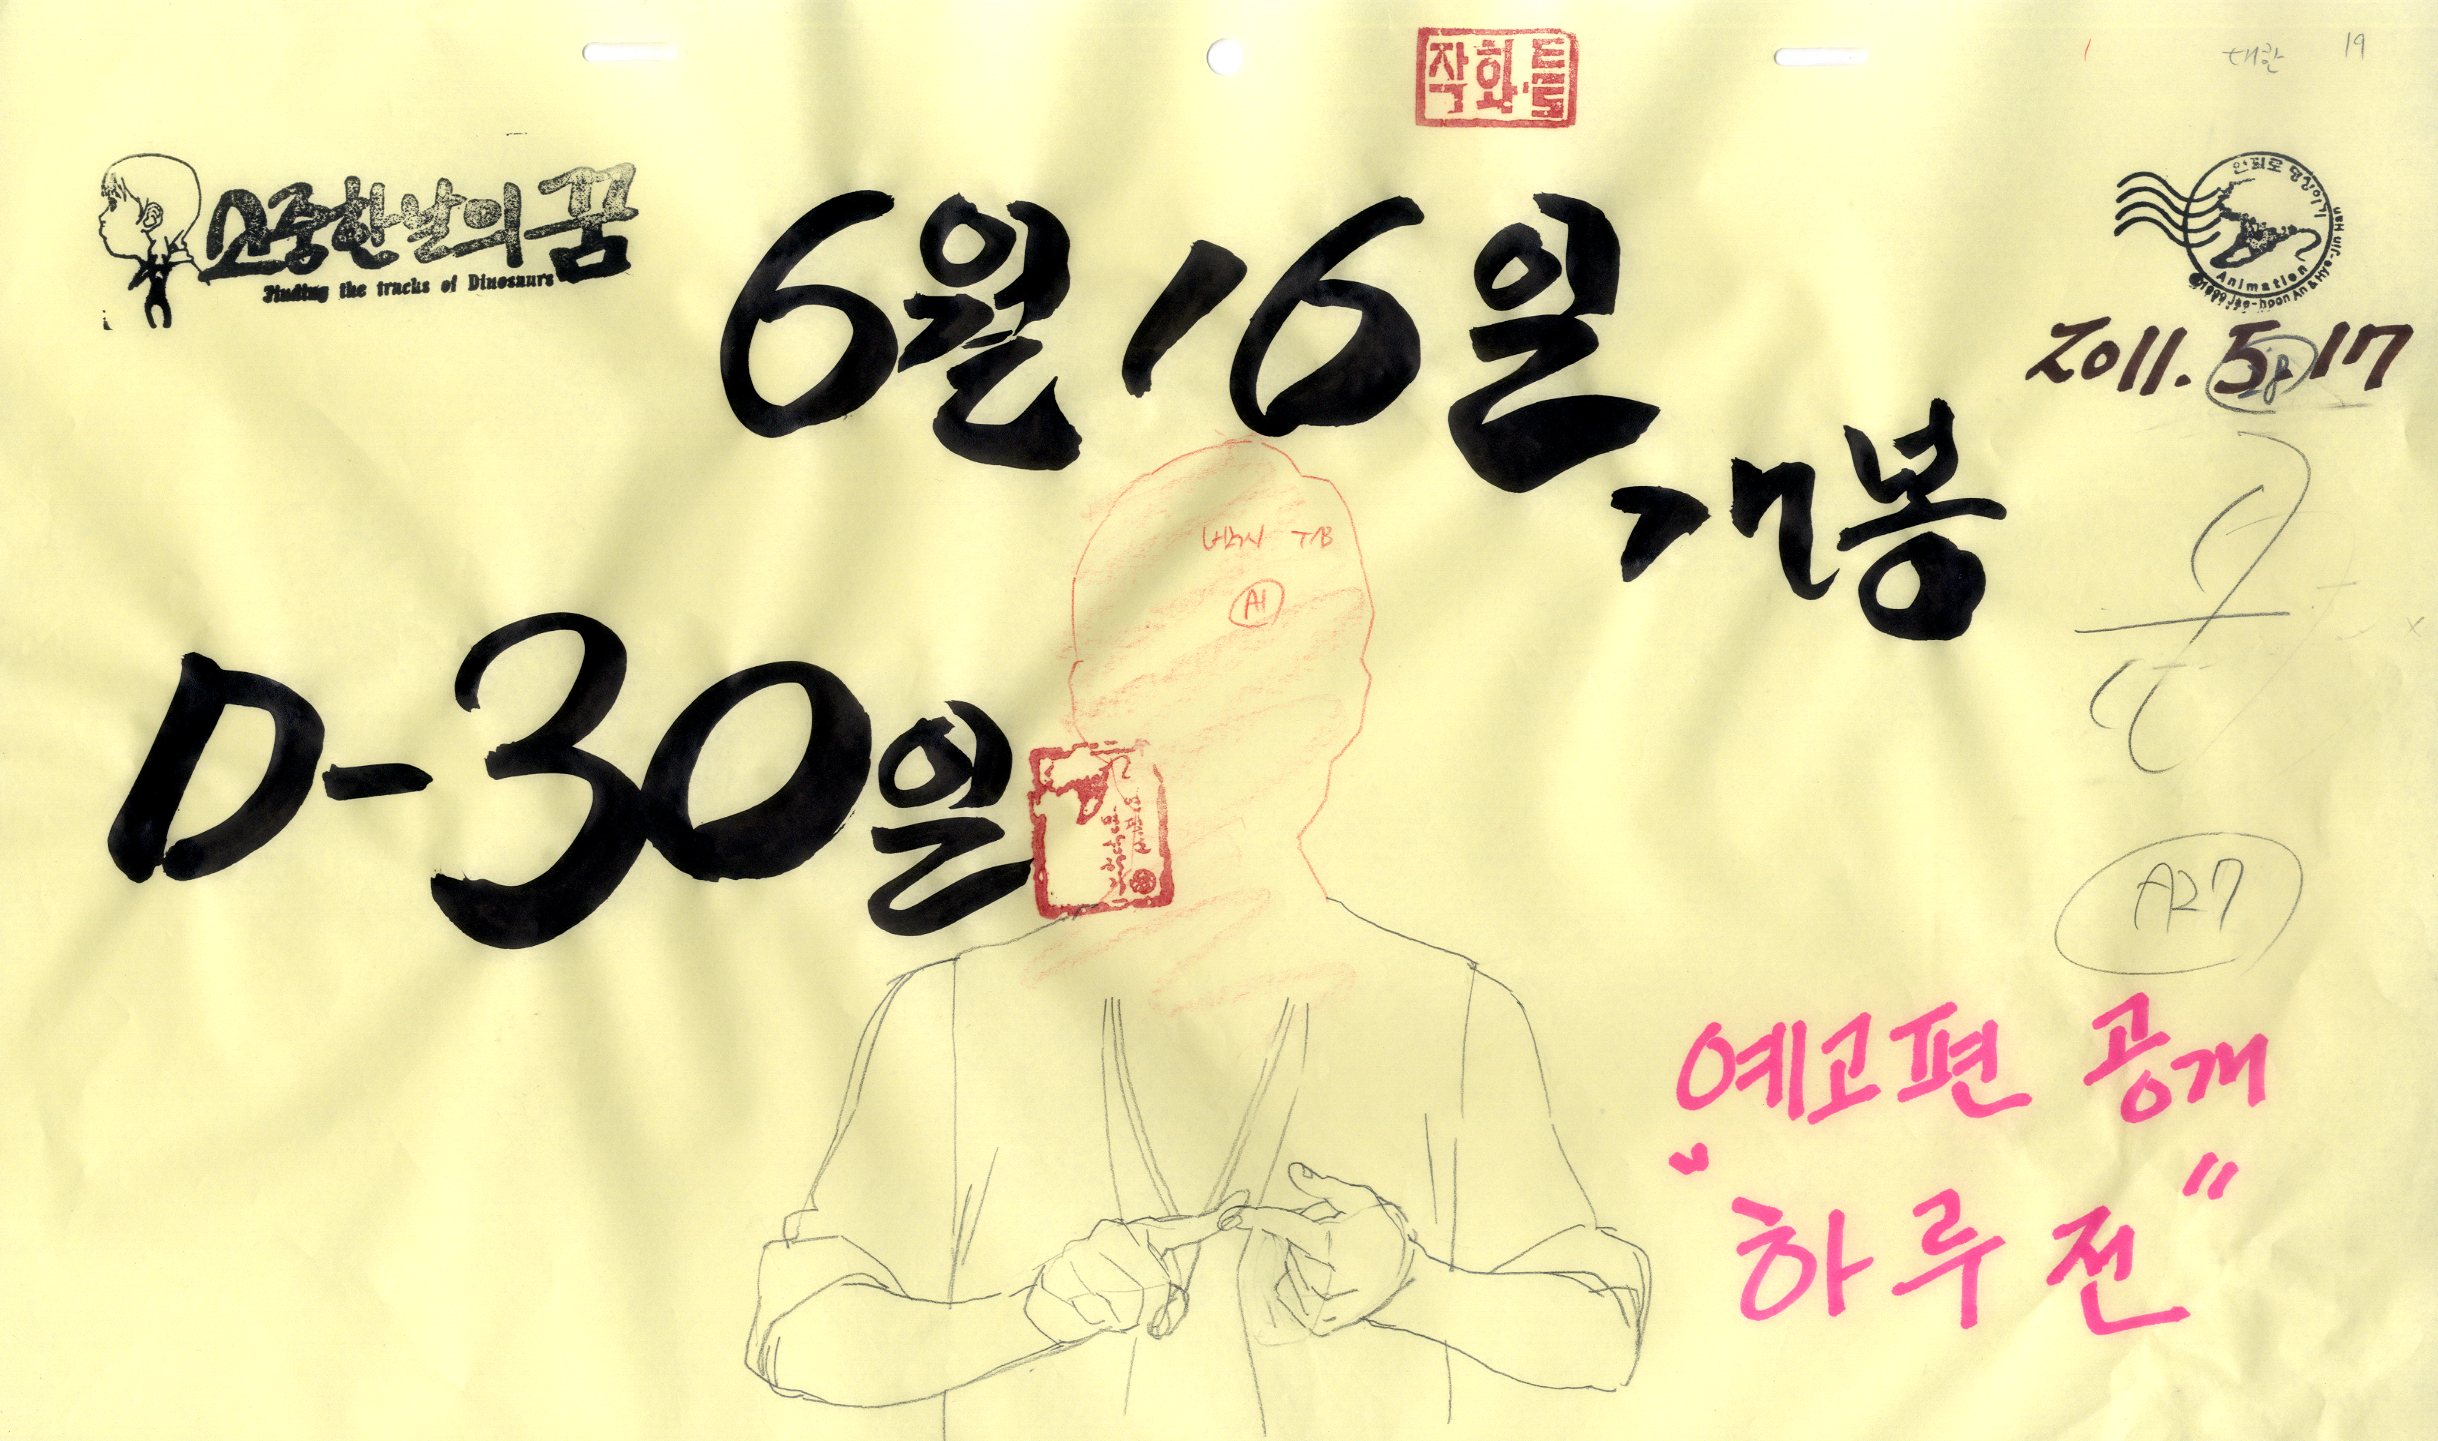 작화·틀
대한 19
소중한날의꿈
Finding the tracks of Dinosaurs
연필로 명상하기
Animation
1999 Jae-hoon An & Hye-Jin Han
6월 16일
개봉
2011. 5. 17
28
T/B
A1
D-30일
A27
예고편 공개
"하루 전"